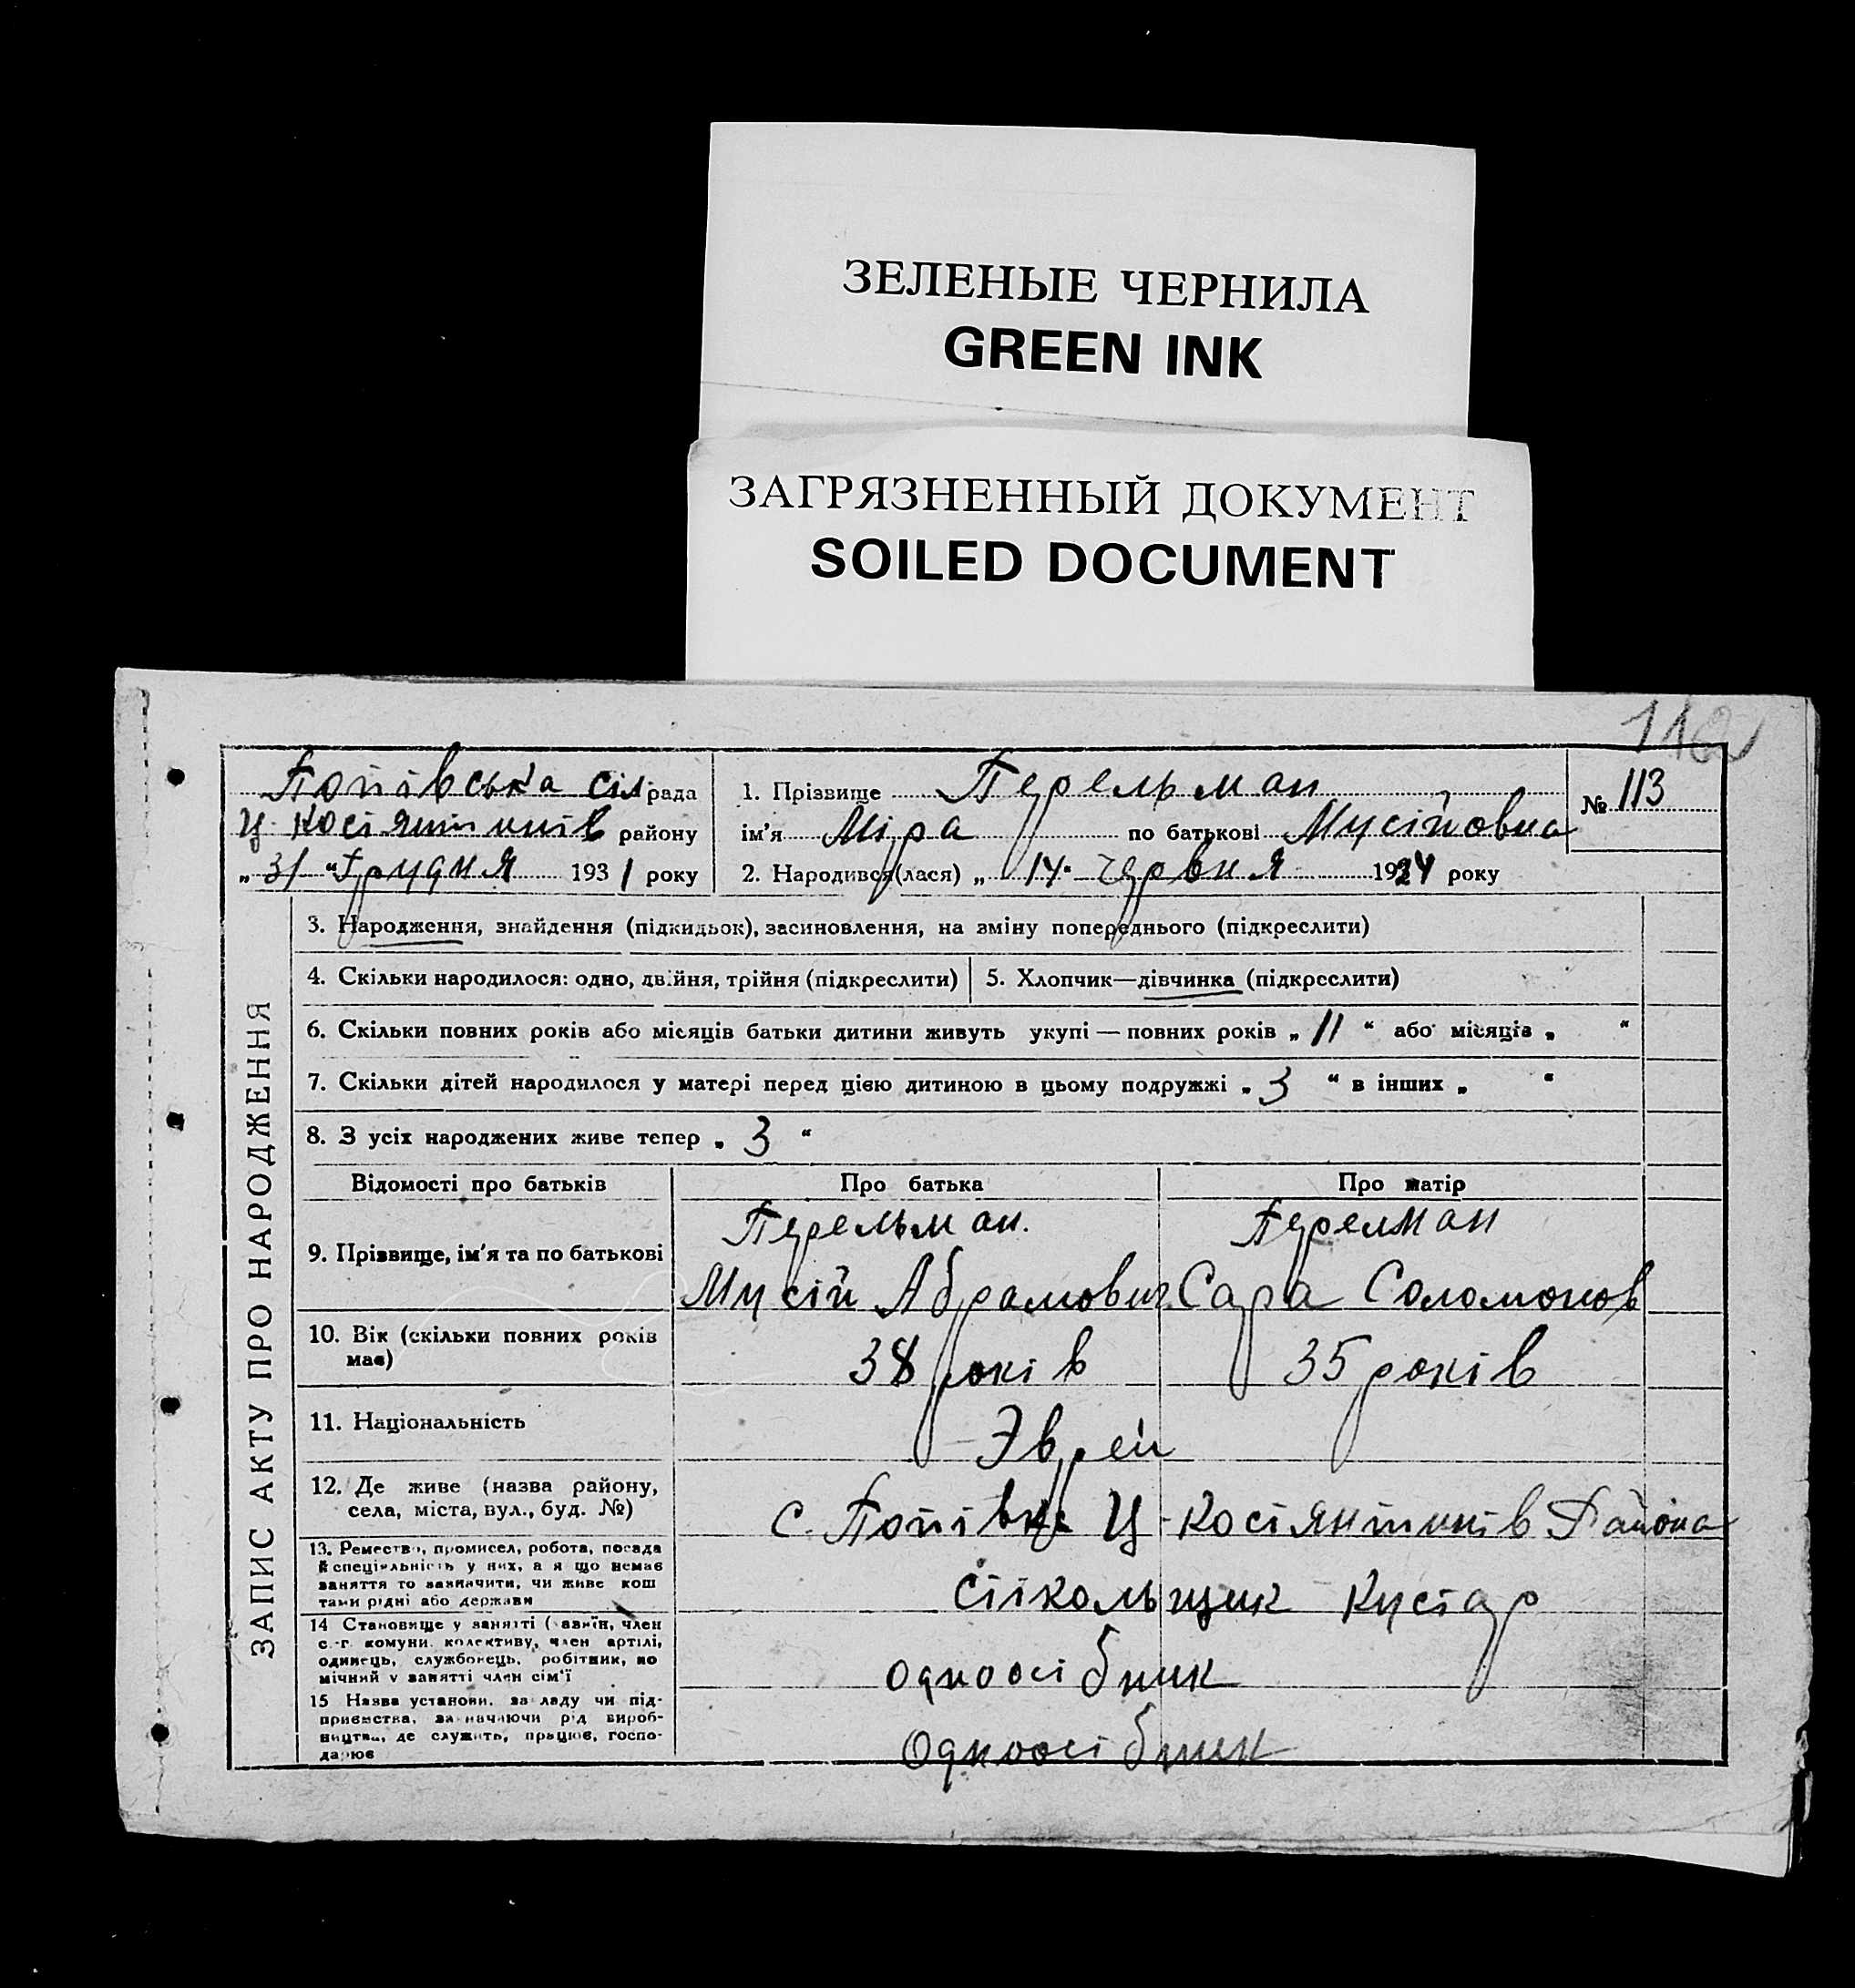 ЗЕЛЕНЫЕ ЧЕРНИЛА
GREEN INK
ЗАГРЯЗНЕННЫЙ ДОКУМЕНТ
SOILED DOCUMENT
Попівська сілрада
Ц. Косіянтинів району
„ 31 “ Грудня 1931 року
1. Прізвище Перельман
ім’я Міра по батькові Мусійовна
2. Народився(лася) „ 14 “ червня 1924 року
№ 113
ЗАПИС АКТУ ПРО НАРОДЖЕННЯ
3. Народження, знайдення (підкидьок), засиновлення, на зміну попереднього (підкреслити)
4. Скільки народилося: одно, двійня, трійня (підкреслити)
5. Хлопчик—дівчинка (підкреслити)
6. Скільки повних років або місяців батьки дитини живуть укупі — повних років „ 11 “ або місяців „ “
7. Скільки дітей народилося у матері перед цією дитиною в цьому подружжі „ 3 “ в інших „ “
8. З усіх народжених живе тепер „ 3 “
Відомості про батьків Про батька Про матір
9. Прізвище, ім’я та по батькові
Перельман. Перелман
Мусій Абрамович Сара Соломонов
10. Вік (скільки повних років
має)
38 років 35 років
11. Національність
Эврей
12. Де живе (назва району,
села, міста, вул., буд. №)
с. Попівка Ц-Косіянтинів Района
13. Ремество, промисел, робота, посада
й спеціяльність у них, а якщо немає
заняття то зазначити, чи живе кош
тами рідні або держави
сіікольщик Кусіар
14 Становище у занятті (хазяїн, член
с.-г. комуни, колективу, член артілі,
одинець, службовець, робітник, по
мічний у занятті член сім’ї
одноосібник
15 Назва установи, закладу чи під-
приємства, зазначаючи рід вироб-
ництва, де служить, працює, госпо-
дарює
Одноосібник